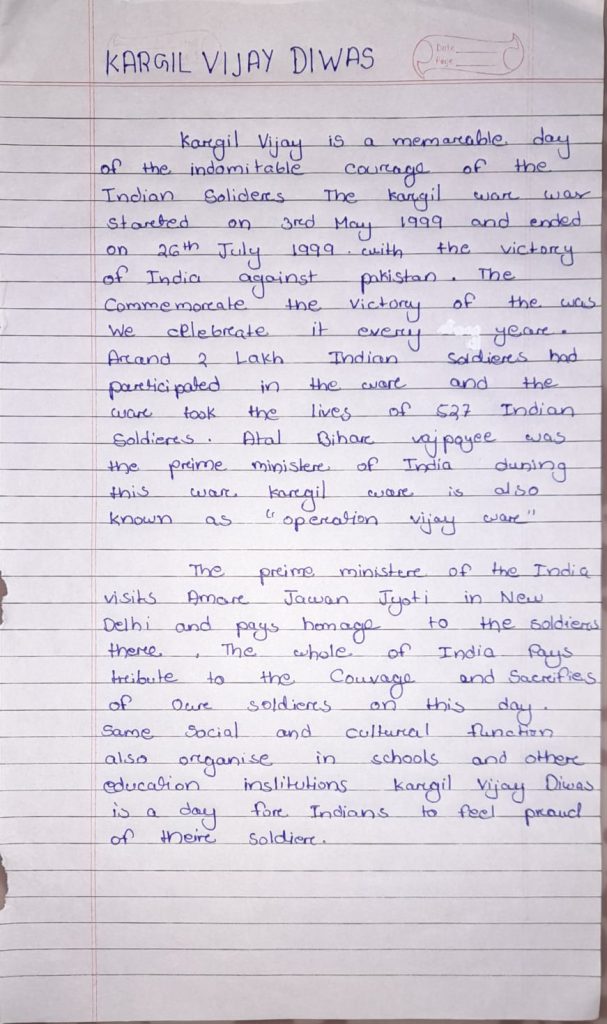 KARGIL VIJAY DIWAS
Date
Page
Karegil Vijay is a memareable day
of the indomitable coureage of the
Indian Solideres The kargil ware war
Starebed on 3red May 1999 and ended
on 26th July 1999. with the victorey
of India against pakistan. The
Commemoreate the victorey of the was
We celebreate it every yeare.
Areand 2 Lakh Indian soldieres had
pareticipated in the ware and the
ware took the lives of 527 Indian
Soldieres. Atal Bihare vajpayee was
the preime ministere of India duning
this ware. karegil ware is also
known as "operation vijay ware"
The preime ministere of the India
visits Amare Jawan Jyoti in New
Delhi and pays homage to the soldieres
there. The whole of India Pays
tribute to the Couvage and Sacrefies
of Oure soldieres on this day.
Same Social and cultural function
also oreganise in schools and othere
education institutions Kargil Vijay Diwas
is a day fore Indians to feel preoud
of theire soldiere.